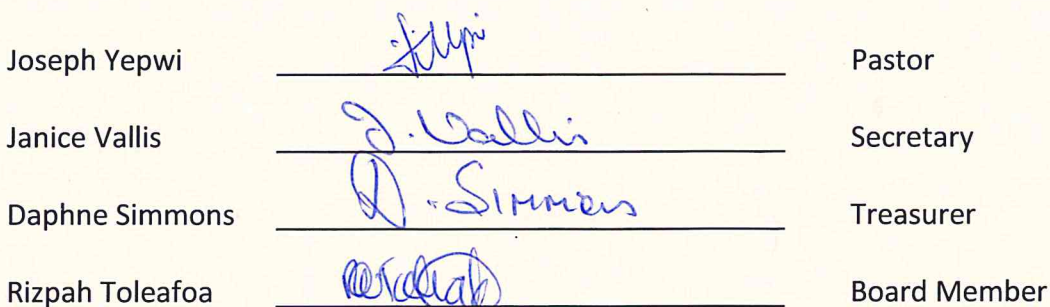 Joseph Yepwi Pastor
Janice Vallis J. Vallis Secretary
Daphne Simmons D. Simmons Treasurer
Rizpah Toleafoa Board Member